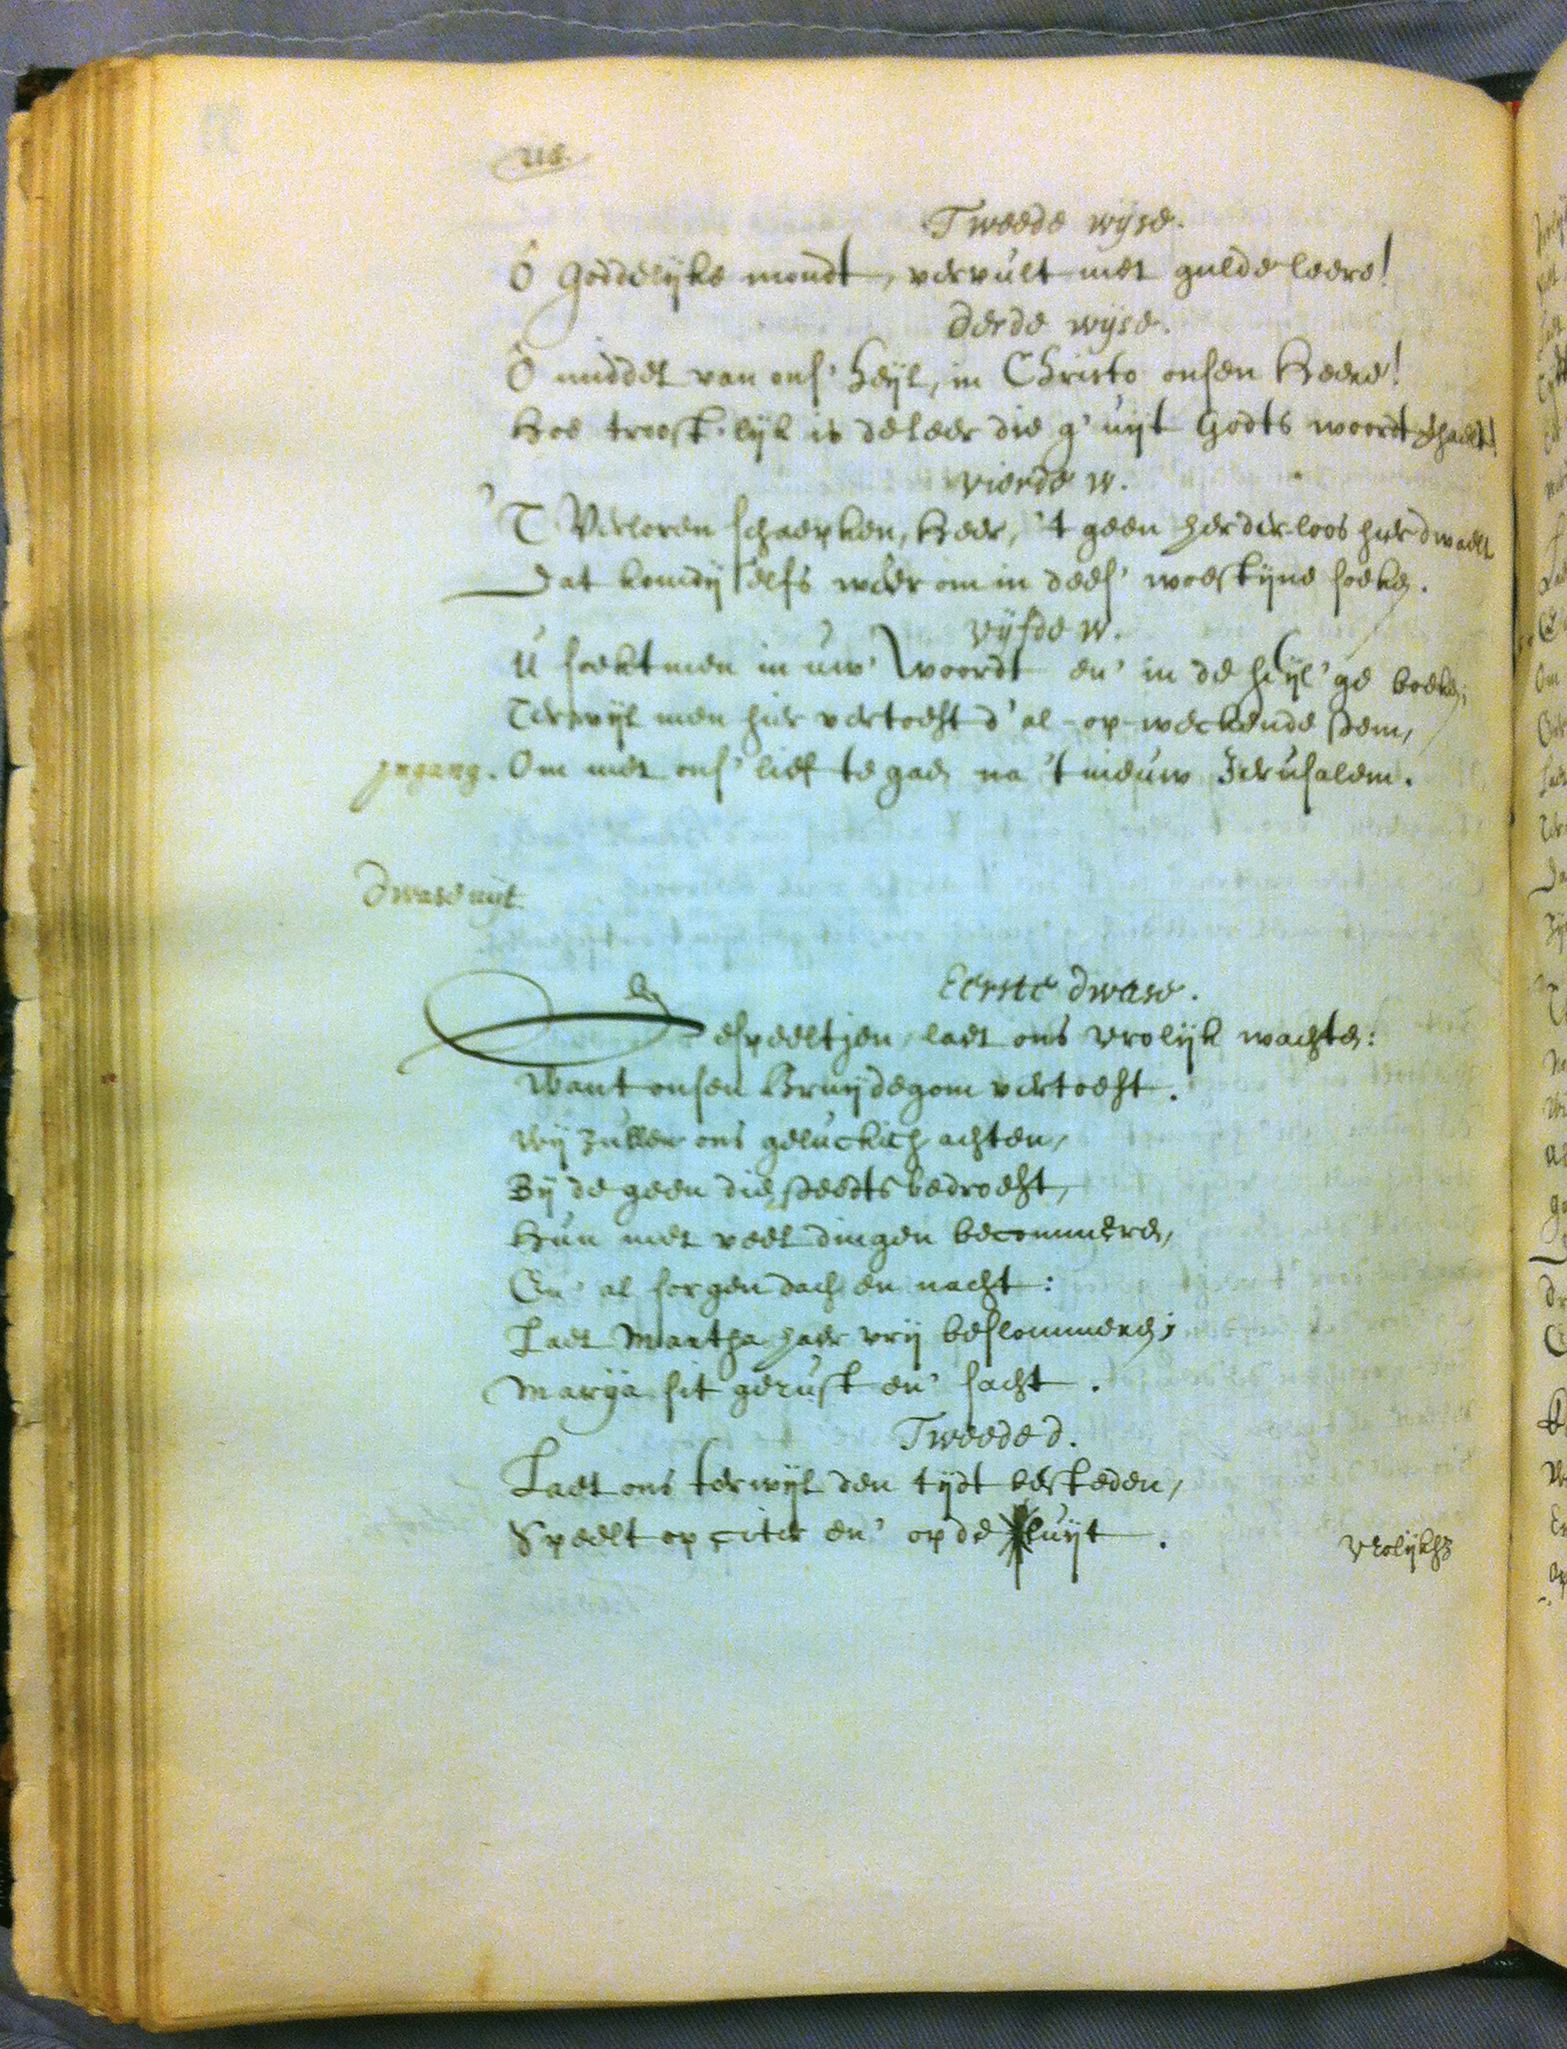 Tweede wijse.
Ô Goddelijke mondt, vervult met gulde leere!
Derde wijse.
Ô middel van ons' heijl, in Christo onsen Heere!
Hoe troost-lijk is de leer die g' uijt Godts woordt
Vierde w.
'T Verloren schaepken, Heer, 't geen herderloos hier dwaelt
Dat komdij selfs weerom in dees' woestijne soeken.
Vijfde w.
U soektmen in uw' woordt en' in de heijl'ge boeken;
Terwijl men hier vertoeft d'al-op-weckende stem,
Ingang. Om met ons' lief te gaen na 't nieuw Jerusalem.
Dwase uijt
Eerste dwase.
Gespeeltjen laet ons vrolijk wachten:
Want onsen Bruijdegom vertoeft.
Wij zullen ons geluckich achten,
Bij de geen die steedts bedroeft,
Hun met veel dingen becommeren,
En' al sorgen dach en nacht:
Laet Martha haer vrij beslommeren;
Marija sit gerust en' sacht.
Tweede d.
Laet ons terwijl den tijdt besteden,
Speelt op citer en' op de fluijt.